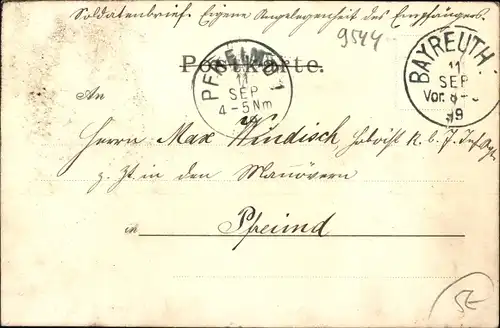 Soldatenbrief. Eigene Angelegenheit des Empfängers.
9544
Postkarte.
PFREIMD
11
SEP
4-5Nm
BAYREUTH
11
SEP
Vor. 8-9
99
An
Herrn Max Windisch, Hoboist K. b. 7. Inf. Rgt.
z. Zt. in den Manövern
in Pfreimd
SE